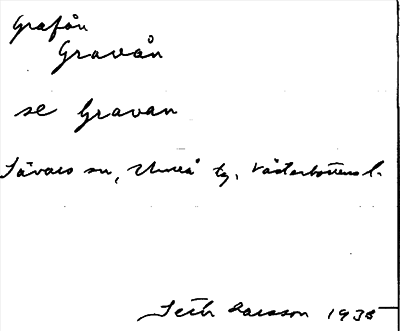 Grafån
Gravån
se Gravan
Sävars sn, Umeå tg, Västerbottens l.
Seth Larsson 1938